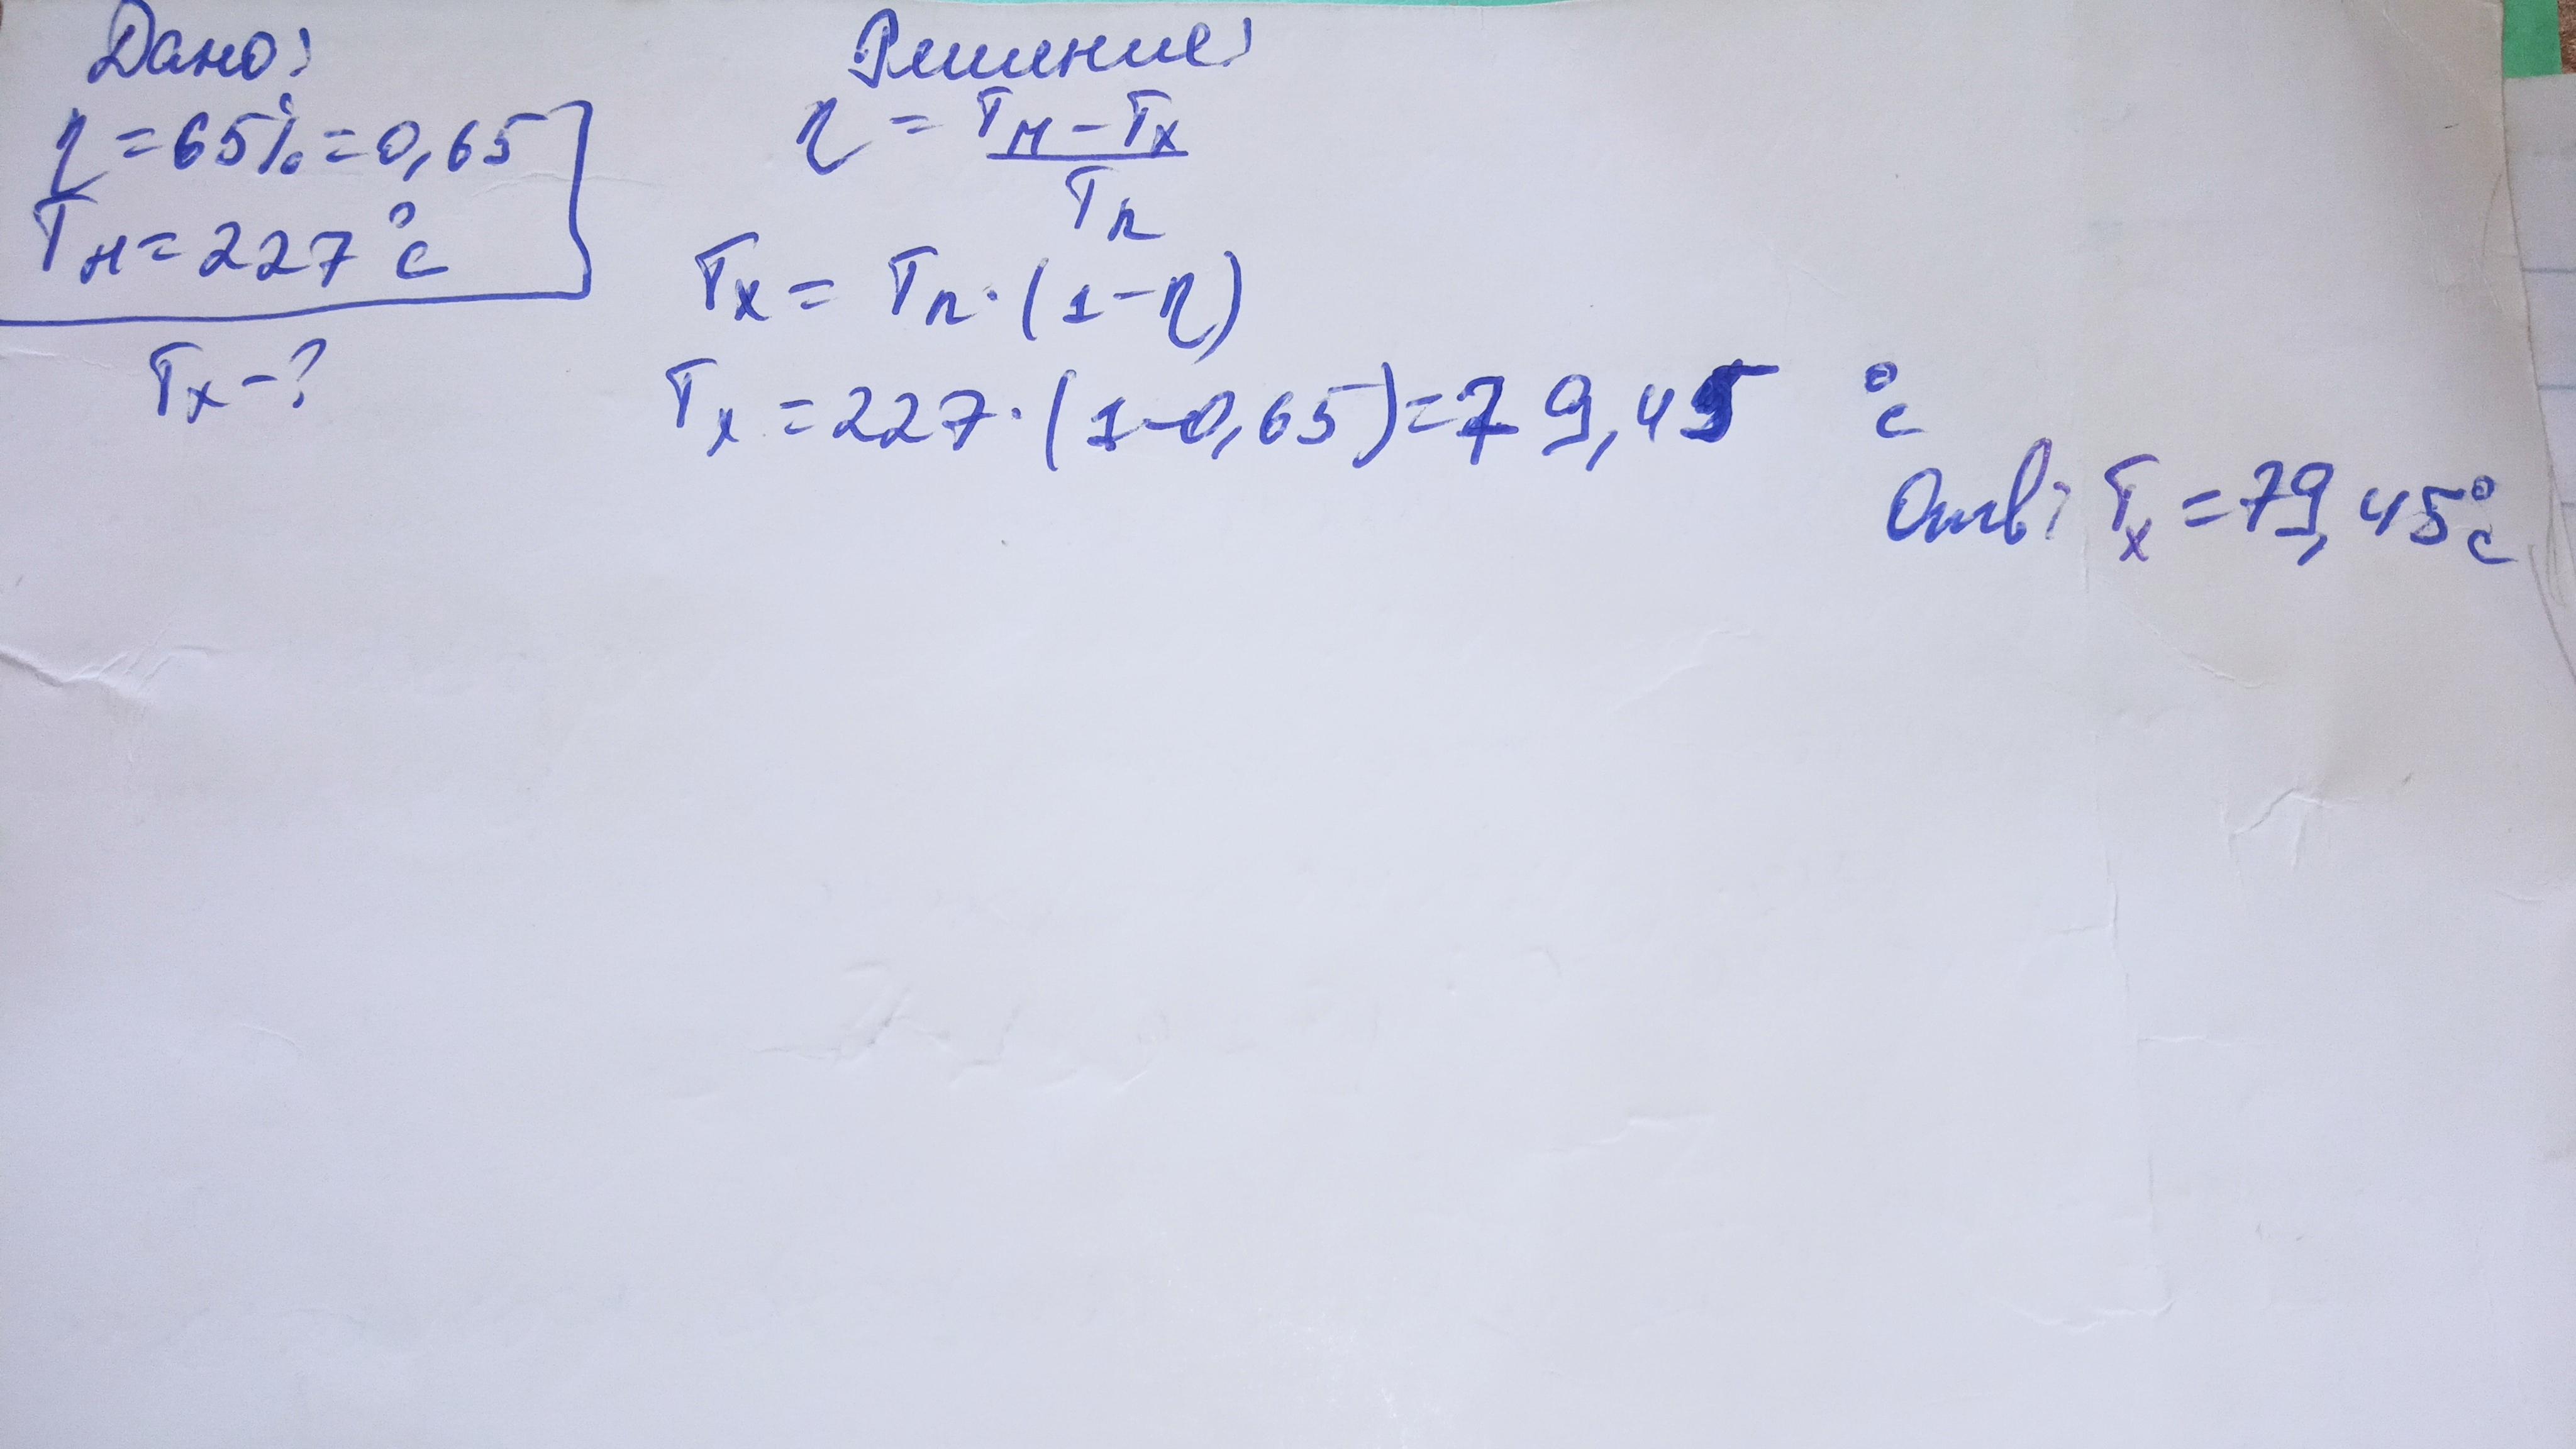 Дано:
η = 65% = 0,65
Tн = 227 °c
Tx - ?
Решение:
η = (Tн - Tx) / Tн
Tx = Tн · (1 - η)
Tx = 227 · (1 - 0,65) = 79,45 °c
Отв: Tx = 79,45 °c